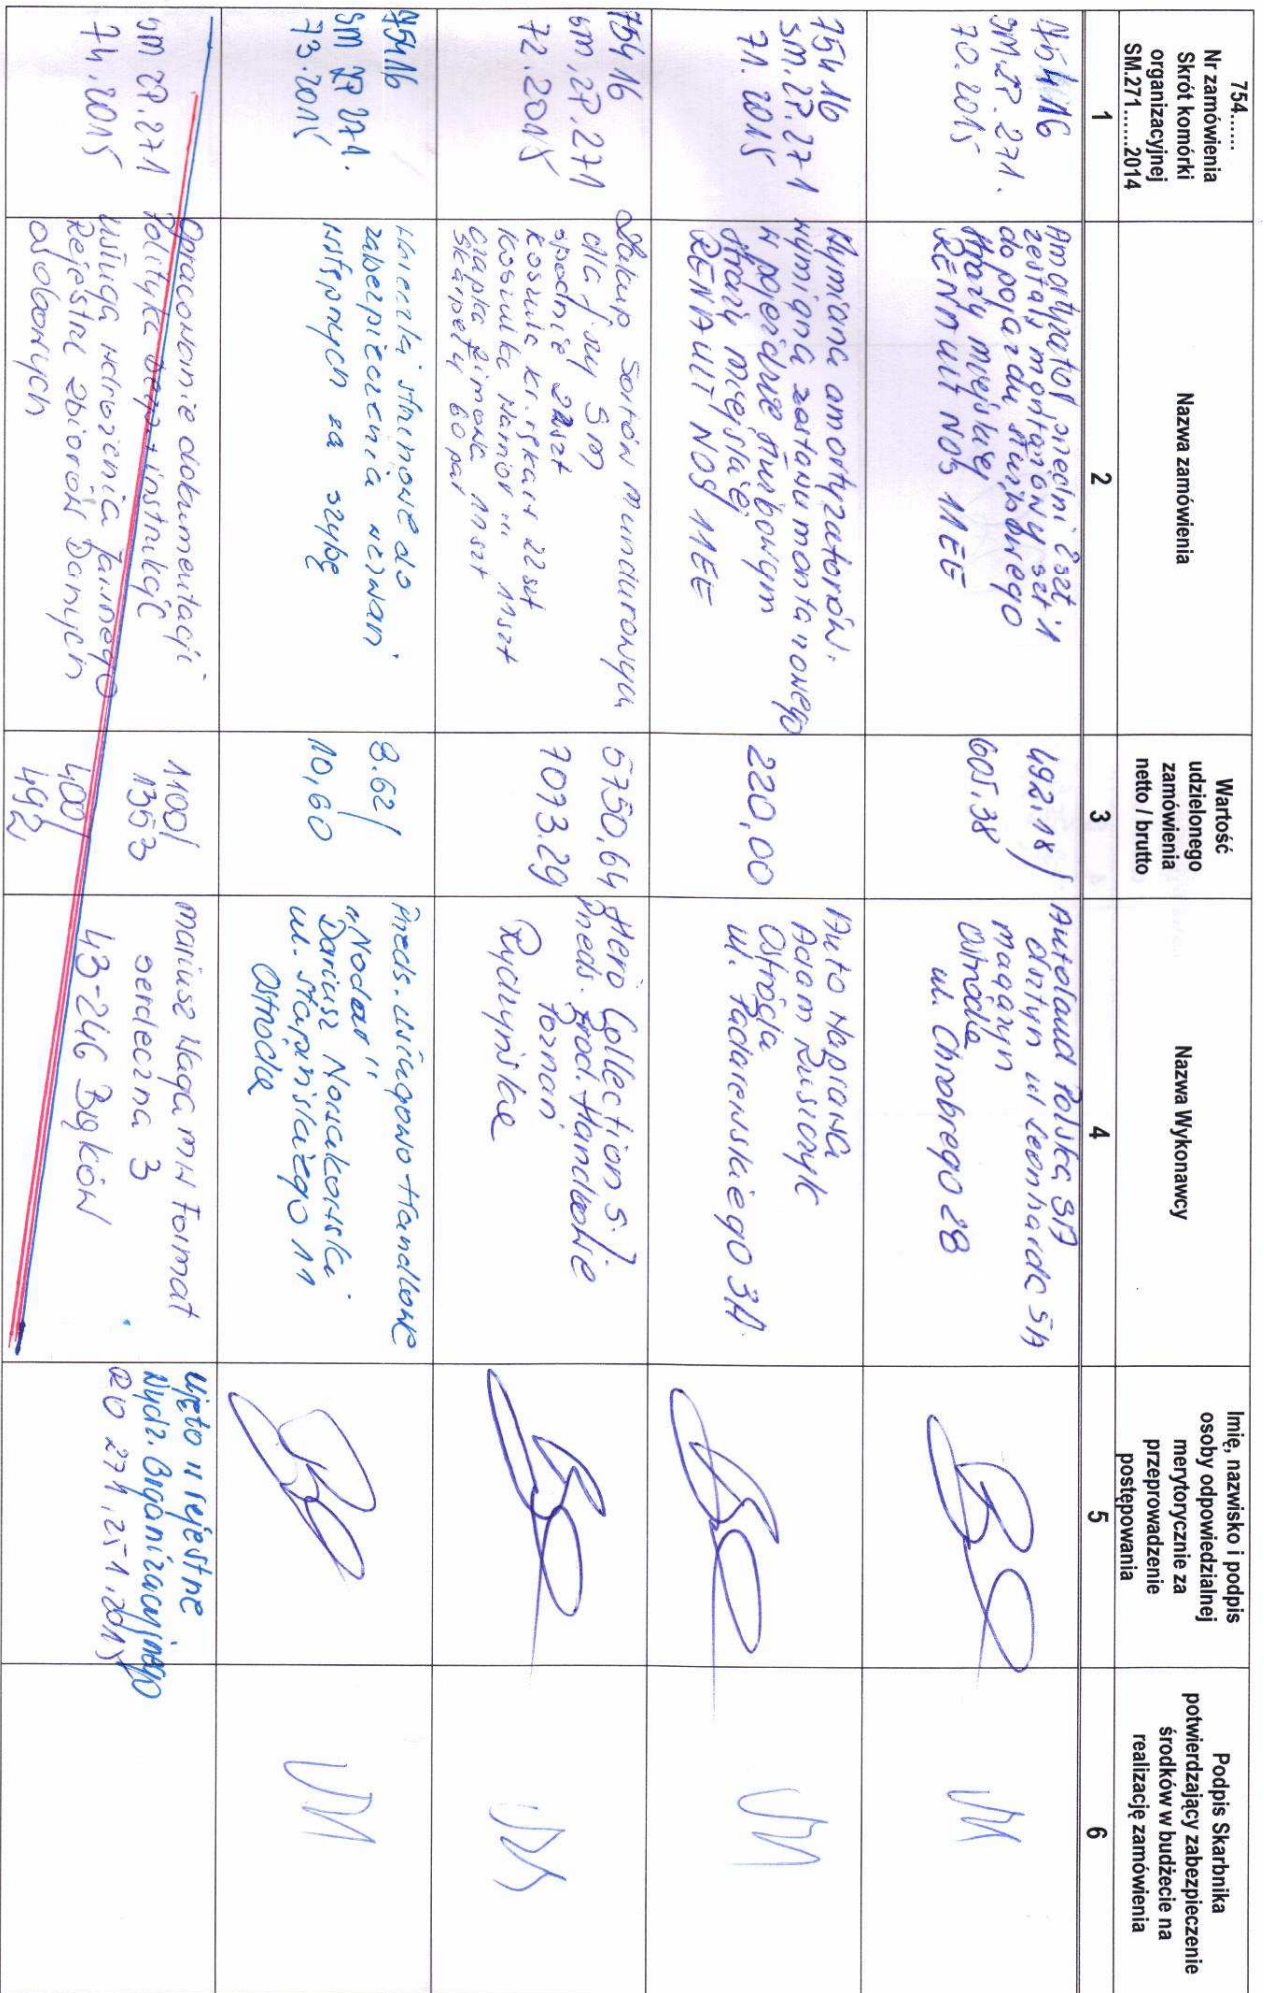 754......
Nr zamówienia
Skrót komórki
organizacyjnej
SM.271......2014
Nazwa zamówienia
Wartość
udzielonego
zamówienia
netto / brutto
Nazwa Wykonawcy
Imię, nazwisko i podpis
osoby odpowiedzialnej
merytorycznie za
przeprowadzenie
postępowania
Podpis Skarbnika
potwierdzający zabezpieczenie
środków w budżecie na
realizację zamówienia
1
2
3
4
5
6
75416
SM.ZP.271.
70.2015
Amortyzator przedni 2 szt,
zestaw montażowy szt 1
do pojazdu służbowego
Straży miejskiej
RENAULT NOS 11EE
492,18/
605,38
Autoland Polska SA
ul Leonharda 5A
magazyn
Ostróda
ul. Chrobrego 28
75416
SM.ZP.271
71.2015
Wymiana amortyzatorów.
wymiana zestawu montażowego
w pojeździe służbowym
Straży miejskiej
RENAULT NOS 11EE
220,00
Auto Naprawa
Adam
Ostróda
ul. Paderewskiego 3A
75416
SM.ZP.271
72.2015
Zakup Sortów mundurowych
dla SM
spodnie 22szt
koszula kr. rękaw 22szt
koszulka 11szt
czapka zimowa 11szt
skarpety 60 par
5750,64
7073.29
Hero Collection S.J
Przeds. Prod. Handlowe
Poznań
75416
SM ZP 271.
73.2015
do
zabezpieczenia wezwań
za szybę
8.62/
10,60
Przeds. Usługowo-Handlowe
Dariusz Nowakowski
ul. 11
Ostróda
SM ZP.271
74.2015
Opracowanie dokumentacji
Polityka bezp. + instrukcje
usługa wdrożenia
Rejestr zbiorów Danych
osobowych
1100/
1353
400/
492,
Mariusz Waga MW Format
serdeczna 3
43-246 Bąków
Ujęto w rejestrze
Wydz. Organizacyjnego
271.251.2015